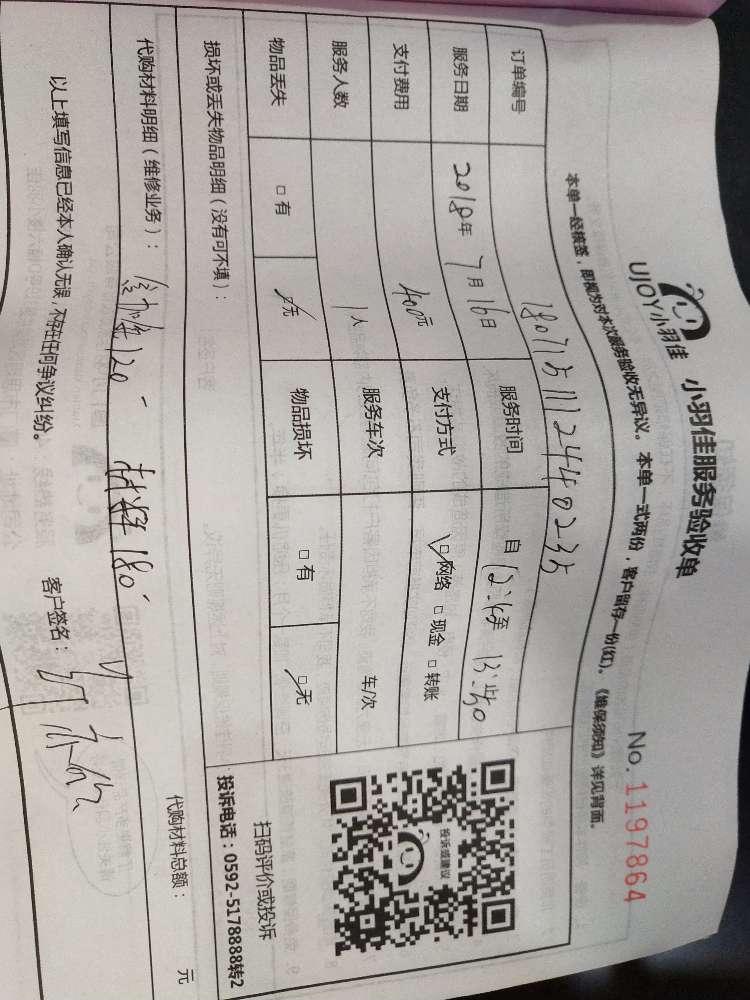 UJOY小羽佳 小羽佳服务验收单 No. 1197864
本单一经核签,即视为对本次服务验收无异议。本单一式两份,客户留存一份(红)。《维保须知》详见背面。
订单编号 180715111244 40235
服务日期 2018年 7月16日 服务时间 自
支付费用 400元 支付方式 □网络 □现金 □转账
服务人数 1人 服务车次 车/次
物品丢失 □有 □无 物品损坏 □有 □无
损坏或丢失物品明细(没有可不填):
投诉或建议
扫码评价或投诉
投诉电话:0592-5178888转2
代购材料明细(维修业务): 120 180 代购材料总额: 元
以上填写信息已经本人确认无误,不存在任何争议纠纷。 客户签名: